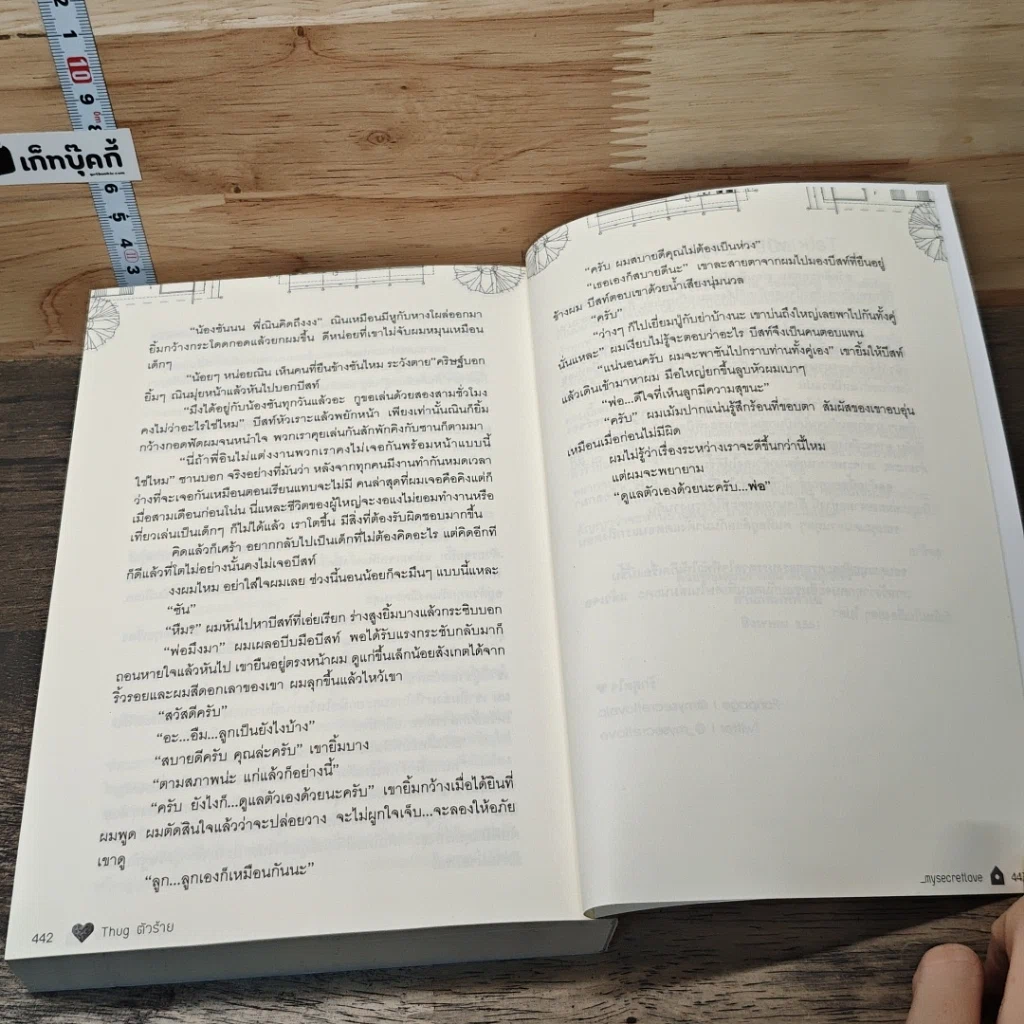 2
1
10
9
8
เก็ทบุ๊คกี้
6
5
4
3
“น้องซันนน พี่ณินคิดถึงงง” ณินเหมือนมีหูกับหางโผล่ออกมา
ยิ้มกว้างกระโดดกอดแล้วยกผมขึ้น ดีหน่อยที่เขาไม่จับผมหมุนเหมือน
เด็กๆ
“น้อยๆ หน่อยณิน เห็นคนที่ยืนข้างซันไหม ระวังตาย”คริษฐ์บอก
ยิ้มๆ ณินมุ่ยหน้าแล้วหันไปบอกบีสท์
“มึงได้อยู่กับน้องซันทุกวันแล้วอะ กูขอเล่นด้วยสองสามชั่วโมง
คงไม่ว่าอะไรใช่ไหม” บีสท์หัวเราะแล้วพยักหน้า เพียงเท่านั้นณินก็ยิ้ม
กว้างกอดฟัดผมจนหนำใจ พวกเราคุยเล่นกันสักพักคิงกับซานก็ตามมา
“นี่ถ้าพี่อินไม่แต่งงานพวกเราคงไม่เจอกันพร้อมหน้าแบบนี้
ใช่ไหม” ซานบอก จริงอย่างที่มันว่า หลังจากทุกคนมีงานทำกันหมดเวลา
ว่างที่จะเจอกันเหมือนตอนเรียนแทบจะไม่มี คนล่าสุดที่ผมเจอคือคิงแต่ก็
เมื่อสามเดือนก่อนโน่น นี่แหละชีวิตของผู้ใหญ่จะงอแงไม่ยอมทำงานหรือ
เที่ยวเล่นเป็นเด็กๆ ก็ไม่ได้แล้ว เราโตขึ้น มีสิ่งที่ต้องรับผิดชอบมากขึ้น
คิดแล้วก็เศร้า อยากกลับไปเป็นเด็กที่ไม่ต้องคิดอะไร แต่คิดอีกที
ก็ดีแล้วที่โตไม่อย่างนั้นคงไม่เจอบีสท์
งงผมไหม อย่าใส่ใจผมเลย ช่วงนี้นอนน้อยก็จะมึนๆ แบบนี้แหละ
“ซัน”
“หืมร” ผมหันไปหาบีสท์ที่เอ่ยเรียก ร่างสูงยิ้มบางแล้วกระซิบบอก
“พ่อมึงมา” ผมเผลอบีบมือบีสท์ พอได้รับแรงกระชับกลับมาก็
ถอนหายใจแล้วหันไป เขายืนอยู่ตรงหน้าผม ดูแก่ขึ้นเล็กน้อยสังเกตได้จาก
ริ้วรอยและผมสีดอกเลาของเขา ผมลุกขึ้นแล้วไหว้เขา
“สวัสดีครับ”
“อะ...อืม...ลูกเป็นยังไงบ้าง”
“สบายดีครับ คุณล่ะครับ” เขายิ้มบาง
“ตามสภาพน่ะ แก่แล้วก็อย่างนี้”
“ครับ ยังไงก็...ดูแลตัวเองด้วยนะครับ” เขายิ้มกว้างเมื่อได้ยินที่
ผมพูด ผมตัดสินใจแล้วว่าจะปล่อยวาง จะไม่ผูกใจเจ็บ...จะลองให้อภัย
เขาดู
“ลูก...ลูกเองก็เหมือนกันนะ”
442 Thug ตัวร้าย
“ครับ ผมสบายดีคุณไม่ต้องเป็นห่วง”
“เธอเองก็สบายดีนะ” เขาละสายตาจากผมไปมองบีสท์ที่ยืนอยู่
ข้างผม บีสท์ตอบเขาด้วยน้ำเสียงนุ่มนวล
“ครับ”
“ว่างๆ ก็ไปเยี่ยมปู่กับย่าบ้างนะ เขาบ่นถึงใหญ่เลยพาไปกันทั้งคู่
นั่นแหละ” ผมเงียบไม่รู้จะตอบว่าอะไร บีสท์จึงเป็นคนตอบแทน
“แน่นอนครับ ผมจะพาซันไปกราบท่านทั้งคู่เอง” เขายิ้มให้บีสท์
แล้วเดินเข้ามาหาผม มือใหญ่ยกขึ้นลูบหัวผมเบาๆ
“พ่อ...ดีใจที่เห็นลูกมีความสุขนะ”
“ครับ” ผมเม้มปากแน่นรู้สึกร้อนที่ขอบตา สัมผัสของเขาอบอุ่น
เหมือนเมื่อก่อนไม่มีผิด
ผมไม่รู้ว่าเรื่องระหว่างเราจะดีขึ้นกว่านี้ไหม
แต่ผมจะพยายาม
“ดูแลตัวเองด้วยนะครับ...พ่อ”
_mysecretlove